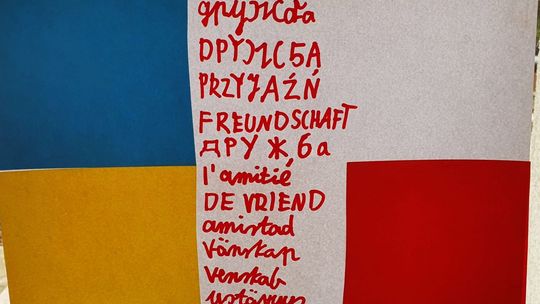 дружба
ДРУЖБА
PRZYJAŹŃ
FREUNDSCHAFT
ДРУЖба
l'amitié
DE VRIEND
amistad
vänskap
venskab